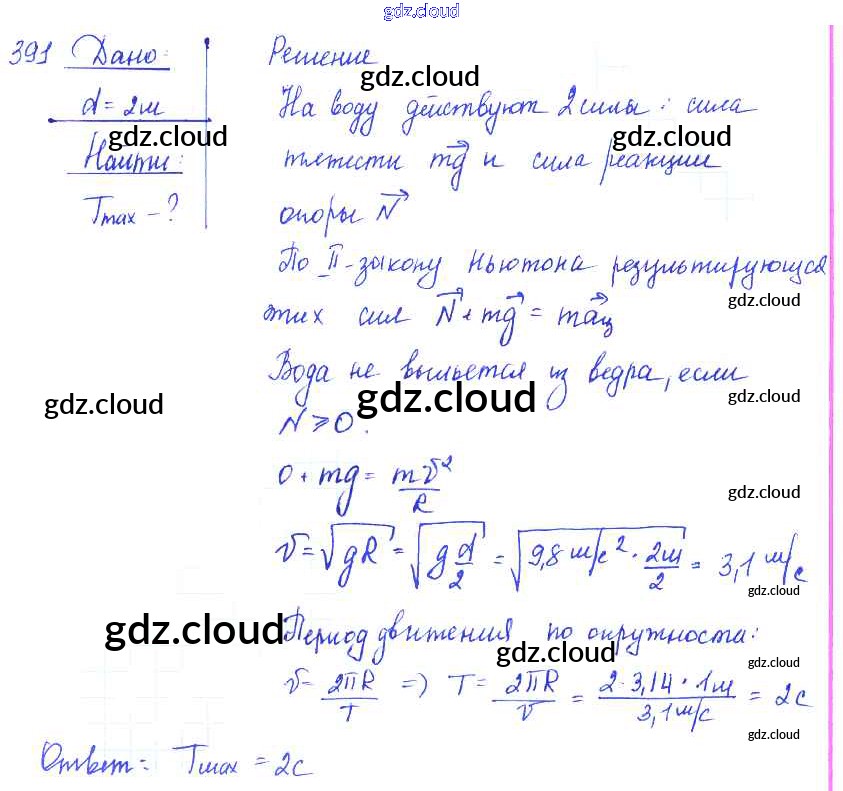 gdz.cloud
391 Дано:
d = 2м
Найти:
Tmax - ?
Решение
gdz.cloud
На воду действуют 2 силы: сила
gdz.cloud gdz.cloud
тяжести mg⃗ и сила реакции
опоры N⃗
По II-закону Ньютона результирующая
gdz.cloud
этих сил N⃗ + mg⃗ = ma⃗ц
Вода не выльется из ведра, если
gdz.cloud gdz.cloud gdz.cloud
N ⩾ 0.
0 + mg = mv²/R
gdz.cloud
v = √gR = √(g d/2) = √(9,8 м/с² · 2м/2) = 3,1 м/с
gdz.cloud
gdz.cloud
Период движения по окружности:
gdz.cloud gdz.cloud
v = 2πR/T => T = 2πR/v = 2·3,14·1м/3,1м/с = 2с
gdz.cloud
Ответ: Tмах = 2с